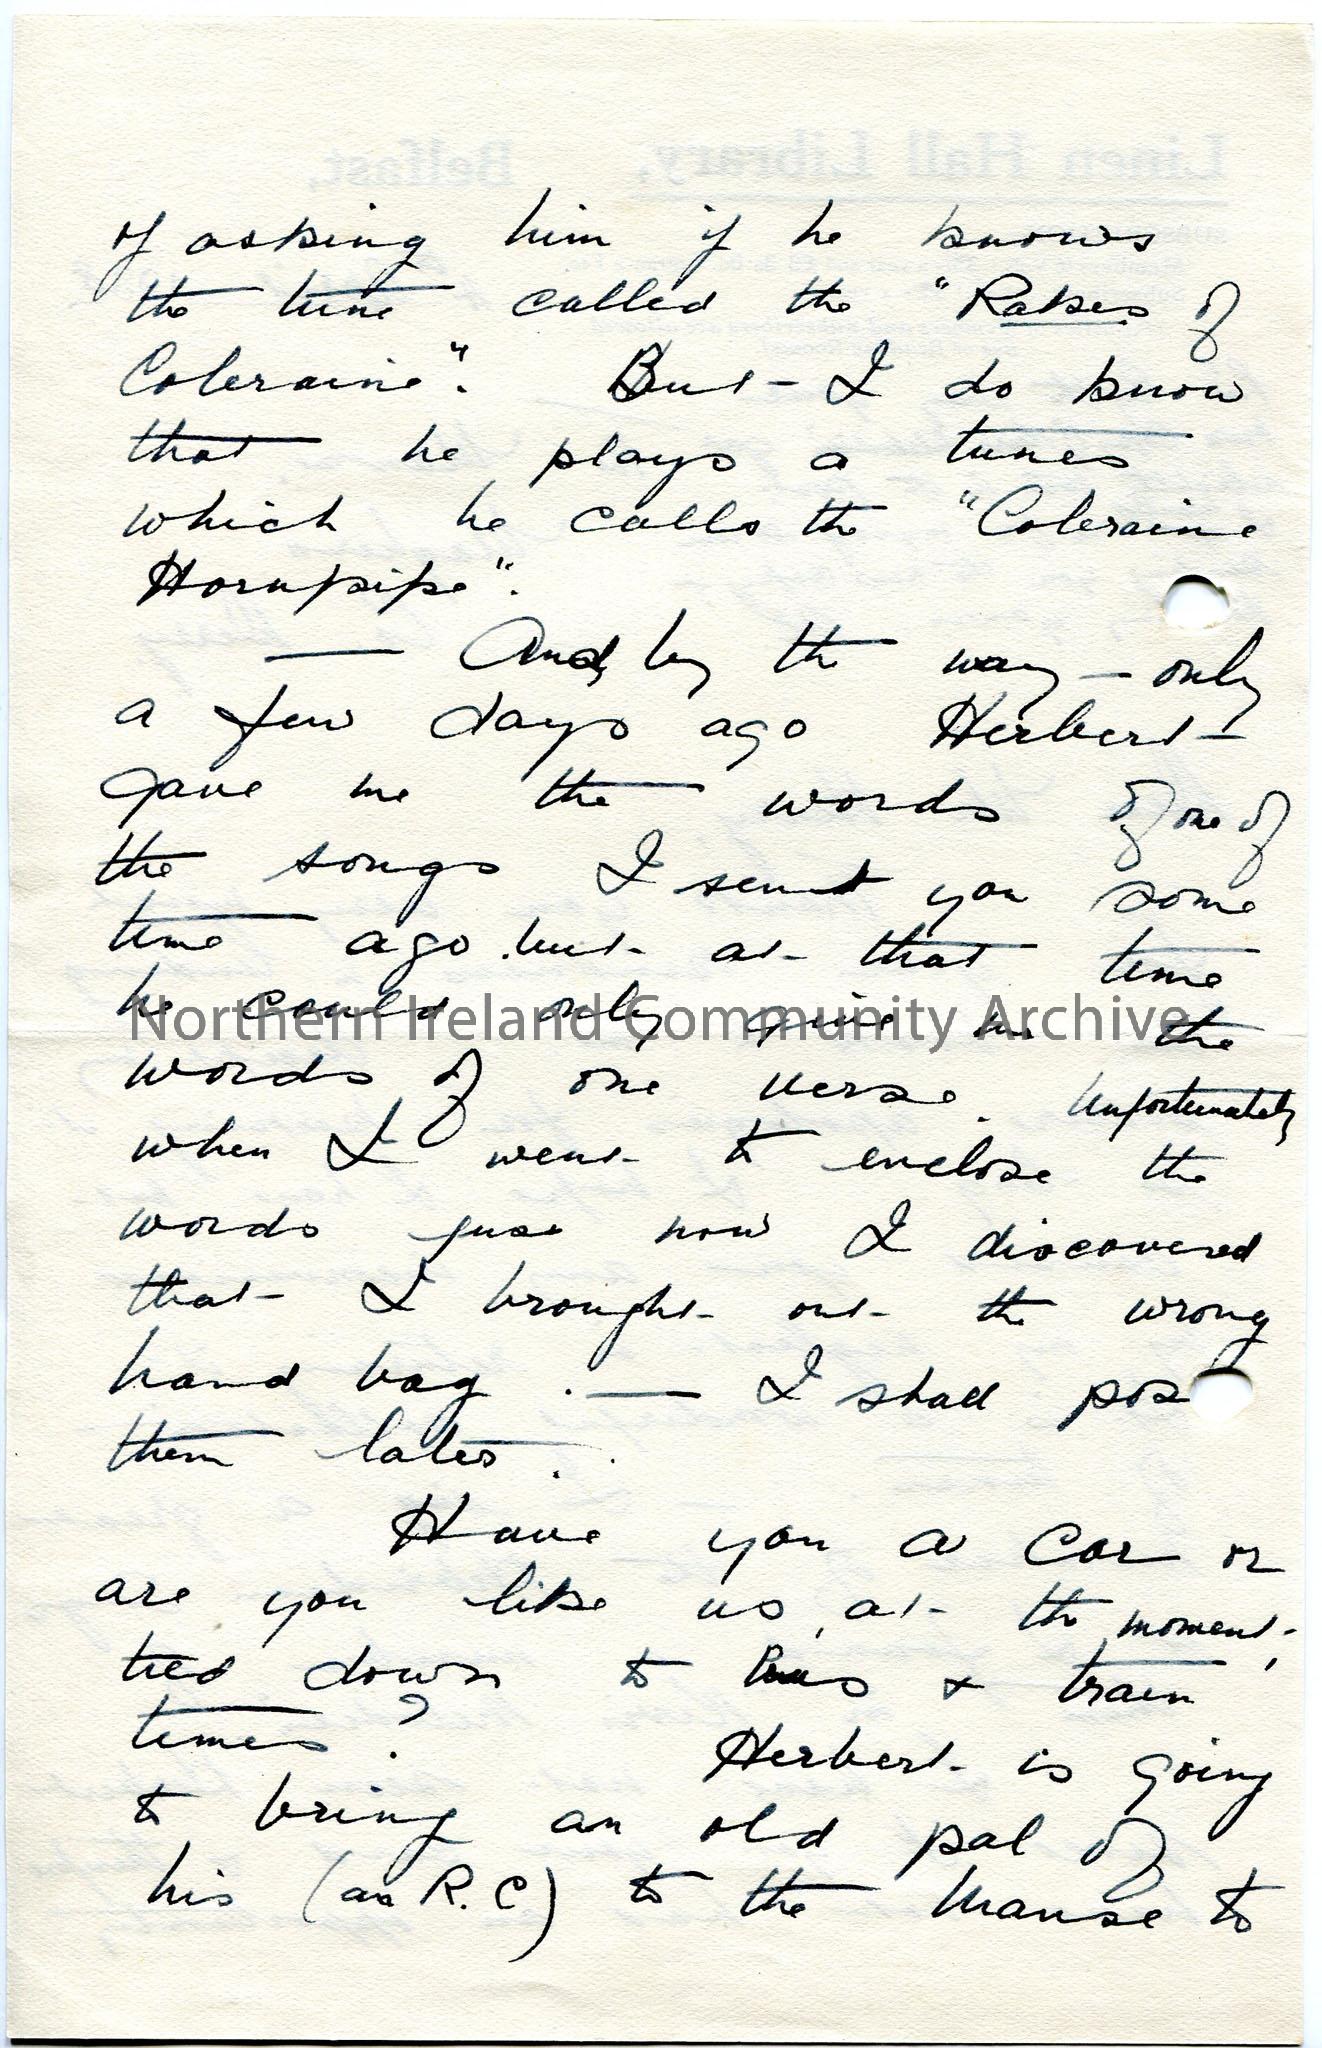 Linen Hall Library,
Belfast,
of asking him if he knows
the tune called the "Rakes of
Coleraine". But I do know
that he plays a tunes
which he calls the "Coleraine
Hornpipe".
— And, by the way — only
a few days ago Herbert
gave me the words of one of
the songs I sent you some
time ago. but at that time
he could only give me the
words of one verse. Unfortunately
when I went to enclose the
words just now I discovered
that I brought out the wrong
hand bag. — I shall pos
them later.
Have you a car or
are you like us, at the moment,
tied down to bus & train
times? Herbert is going
to bring an old pal of
his (an R.C) to the Manse to
Northern Ireland Community Archive